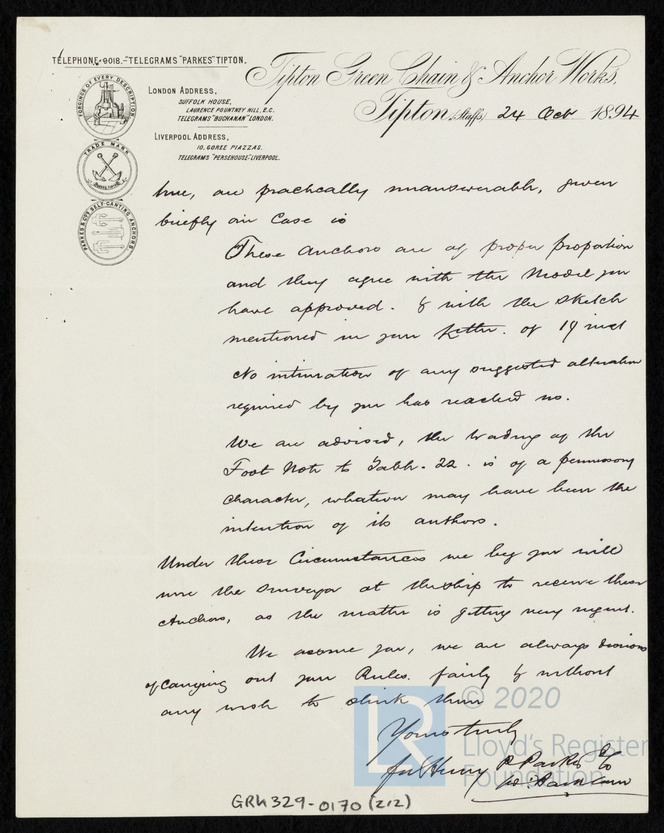 TELEPHONE·9018.–TELEGRAMS "PARKES" TIPTON.
Tipton Green Chain & Anchor Works,
Tipton (Staffs) 24 Oct 1894
FORGINGS OF EVERY DESCRIPTION
LONDON ADDRESS,
SUFFOLK HOUSE,
LAURENCE POUNTNEY HILL, E.C.
TELEGRAMS "BUCHANAN" LONDON.
LIVERPOOL ADDRESS,
10, GOREE PIAZZAS.
TELEGRAMS "PERSEHOUSE" LIVERPOOL.
TRADE MARK
PARKES & CO'S SELF-CANTING ANCHORS
true, are practically unanswerable, given
briefly our Case is
These Anchors are of proper proportion
and they agree with the Model you
have approved. & with the sketch
mentioned in your Letter. of 19 inst
No intimation of any suggested alteration
required by you has reached us.
We are advised, the reading of the
Foot Note to Table. 22. is of a permissory
character, whatever may have been the
intention of its authors.
Under these Circumstances we beg you will
wire the Surveyor at the ship to receive these
Anchors, as the matter is getting very urgent.
We assure you, we are always desirous
of carrying out your Rules. fairly & without
any wish to shirk them
Yours truly
for Henry P Parkes & Co
© 2020
LR
Lloyd's Register
Foundation
GRK329-0170 (2/2)